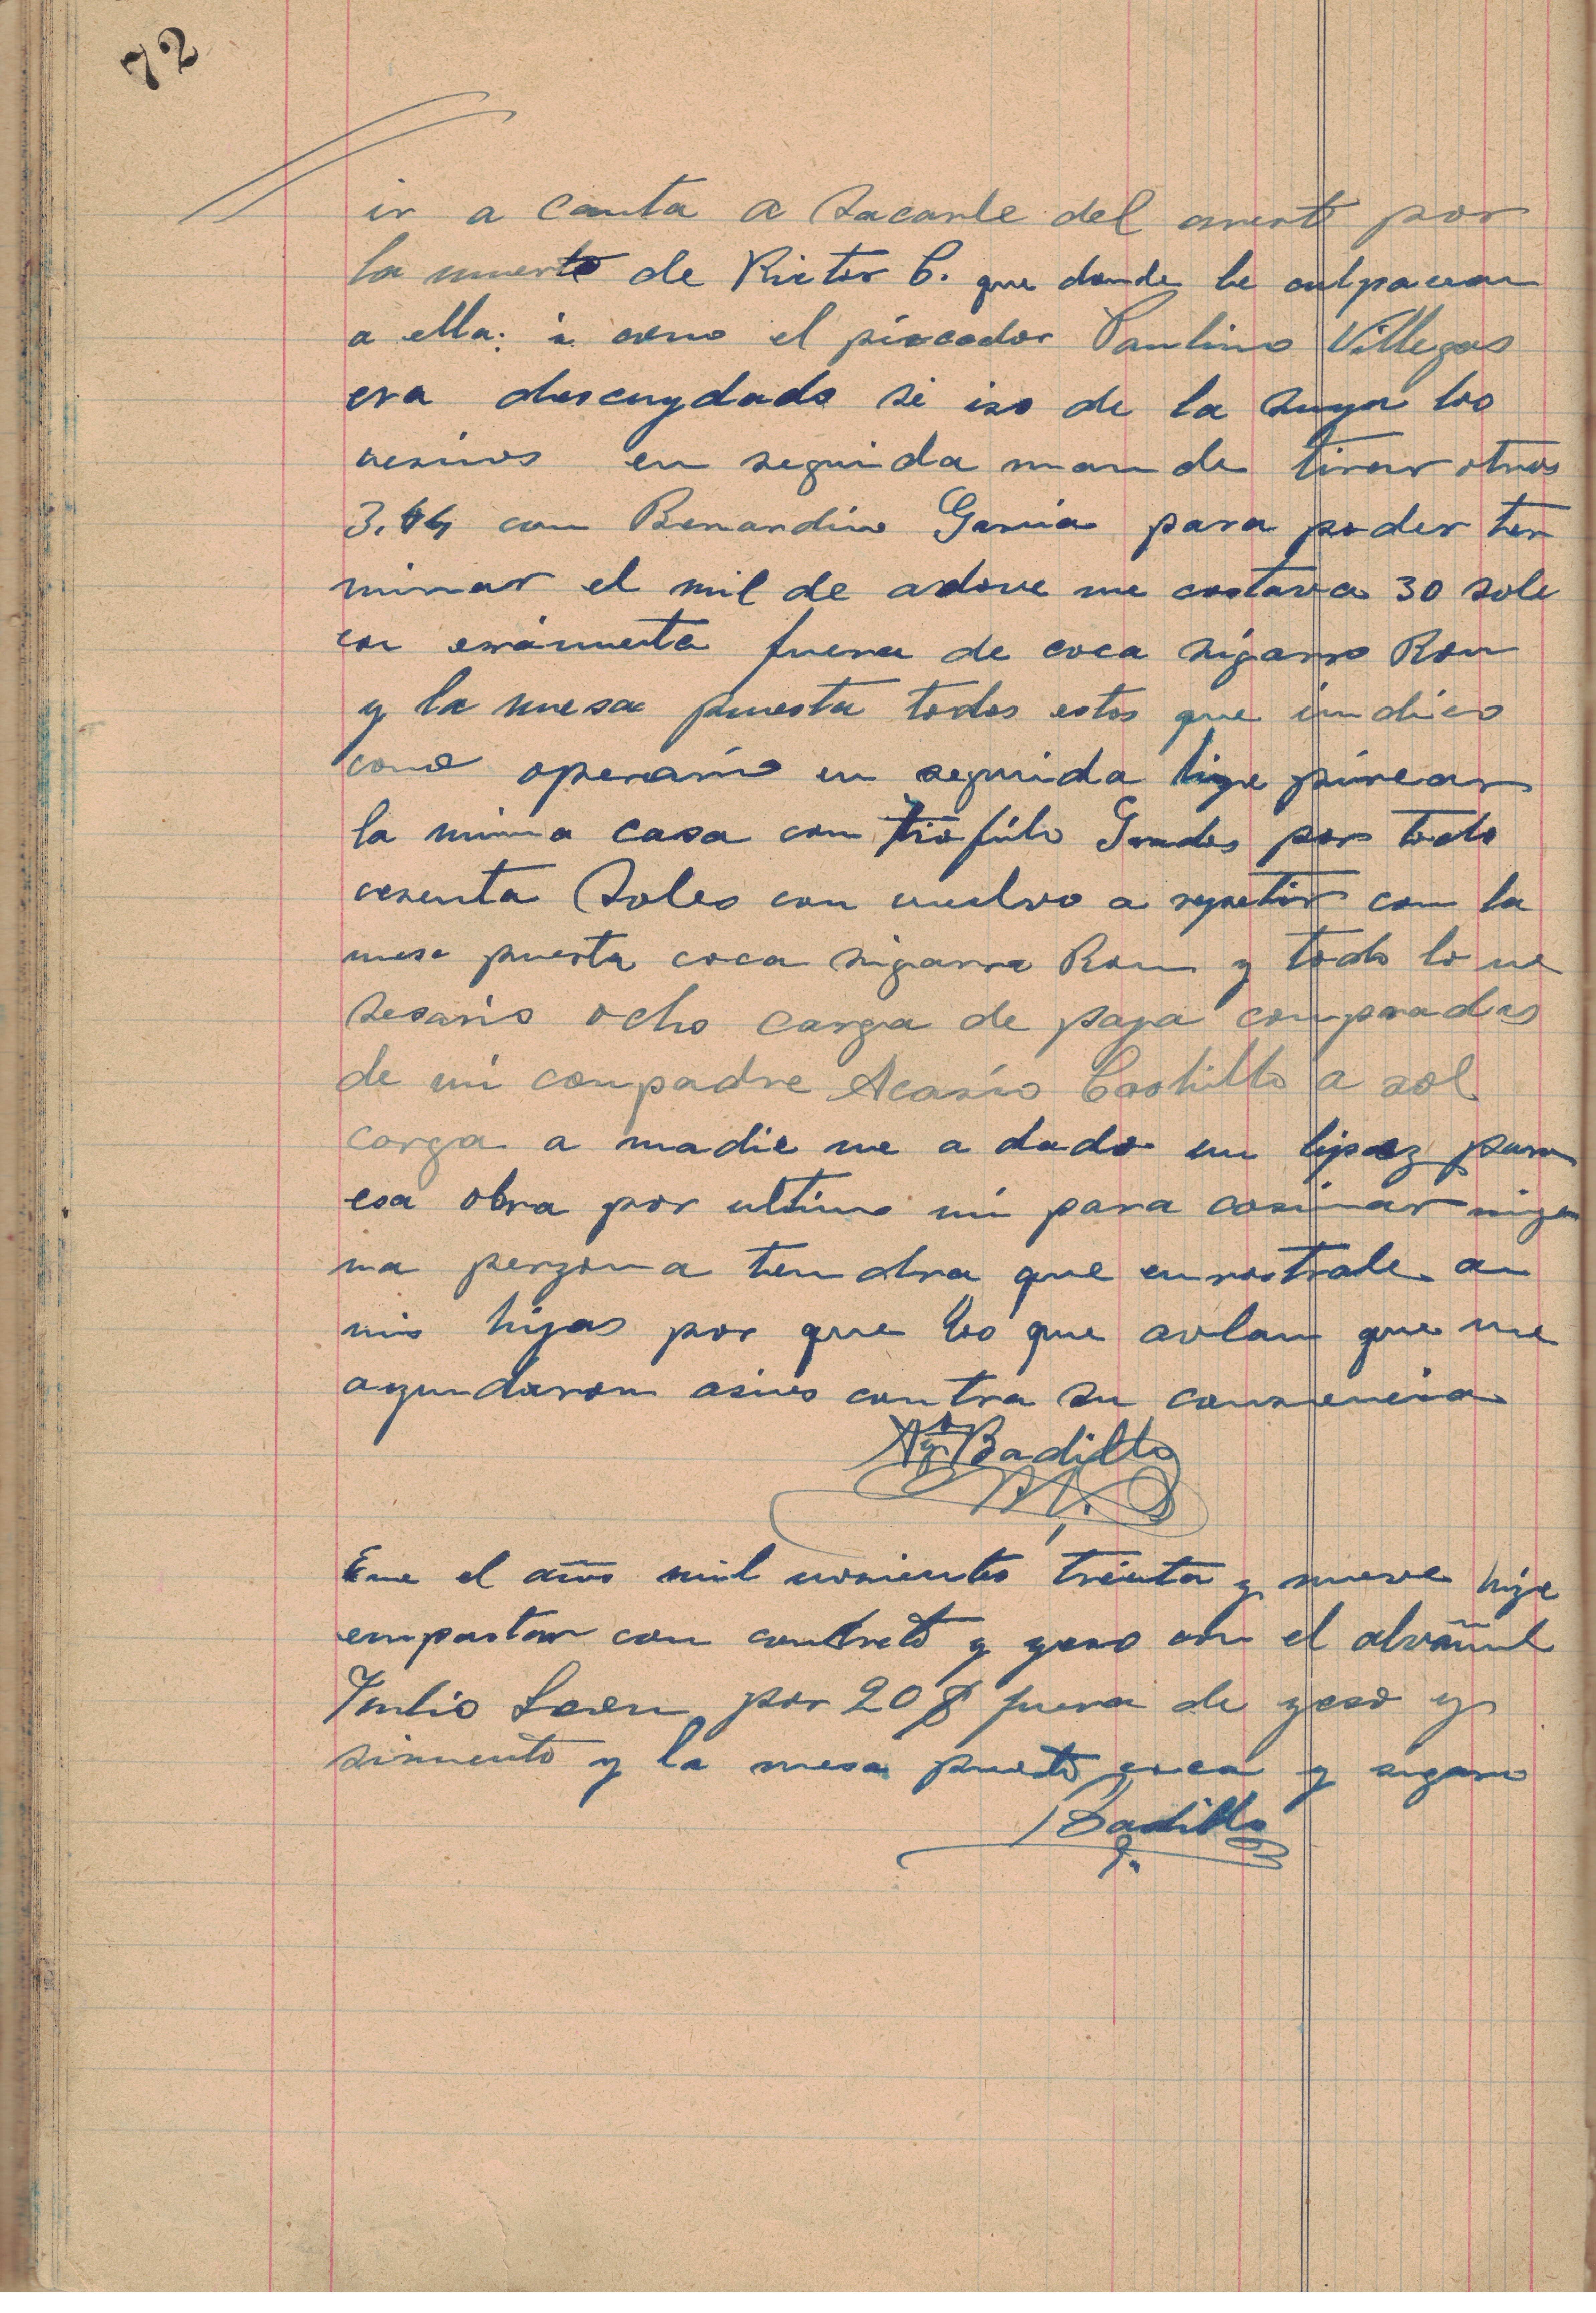 72
ir a canta a sacarle del arresto por
la muerte de Victor C. que donde le culpavan
a ella: i como el piscador Paulino Villegas
era descuydado si iso de la suya los
vesinos en seguida mande tirar otros
3. con Bernardino Garcia para poder ter
minar el mil de adove me costava 30 sole
con fuera de coca sigarro Ron
y la mesa puesta todos estos que indico
como operario en seguida hise pircar
la misma casa con Tiofilo por todo
cesenta Soles con vuelvo a repetir con la
mesa puesta coca sigarro Ron y todo lo ne
sesario ocho carga de paja compradas
de mi compadre Acasio Castillo a sol
carga a nadie me a dado un lapiz para
esa obra por ultimo ni para cosinar nigu
na perzona tendra que enrostrale a
mis hijas por que los que avlan que me
ayundaron asies contra su consiencia
Ago Badillo
Ene el año mil nosientos treinta y nueve hize
empastar con contreto y yeso con el alvañil
Julio Leon por 20 $ fuera de yeso y
simento y la mesa puesta coca y sigarro
Badillo